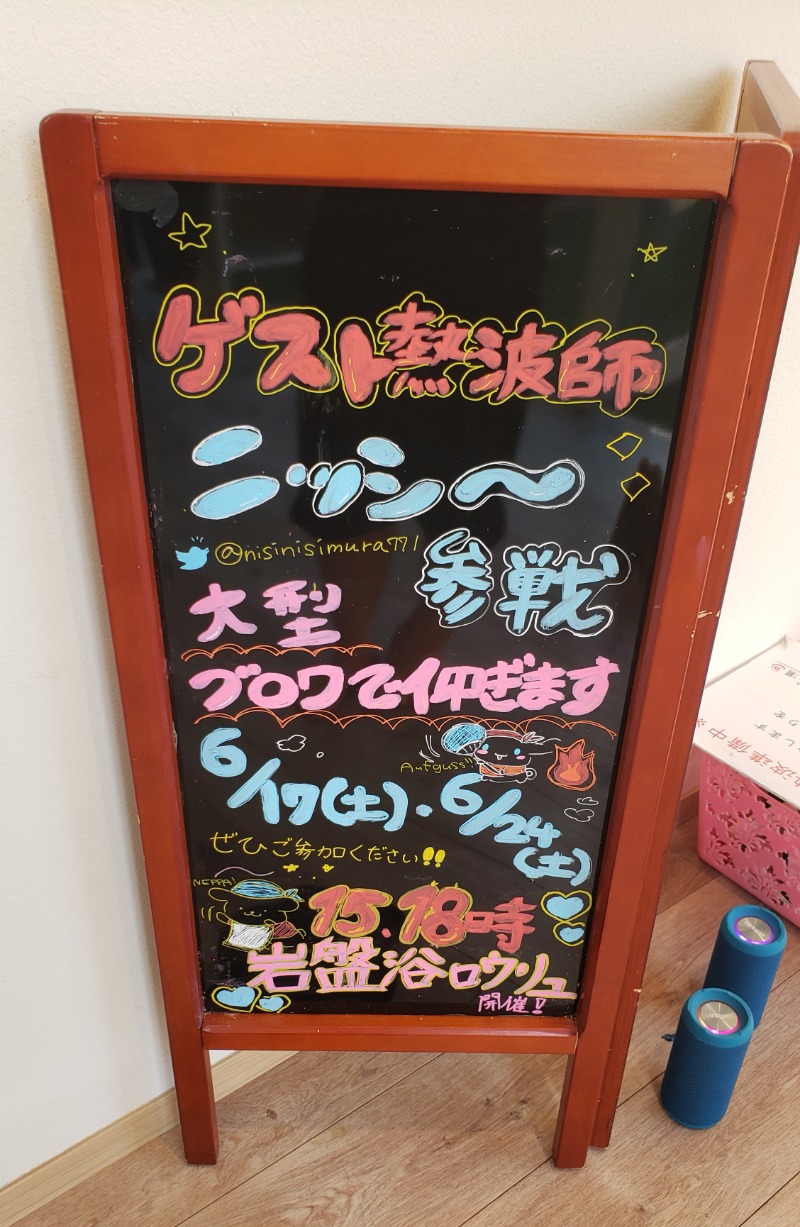 ゲスト熱波師
ニッシ〜
@nisinisimura771
参戦
大型
ブロワで仰ぎます
Aufguss!!
6/17(土)・6/24(土)
ぜひご参加ください!!
NEPPA!
15.18時
岩盤浴ロウリュ
開催!